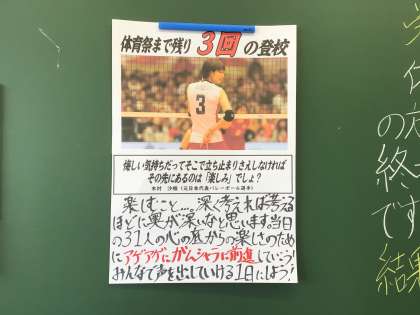 体育祭まで残り 3回 の登校
3
悔しい気持ちだってそこで立ち止まりさえしなければ
その先にあるのは「楽しみ」でしょ？
木村 沙織（元日本代表バレーボール選手）
楽しむこと…。深く考えれば考える
ほどに奥が深いなと思います。当日
の31人の心の底からの楽しさのため
にアゲアゲにガムシャラに前進していこう!
みんなで声を出していける1日にしよう!
終
です
結